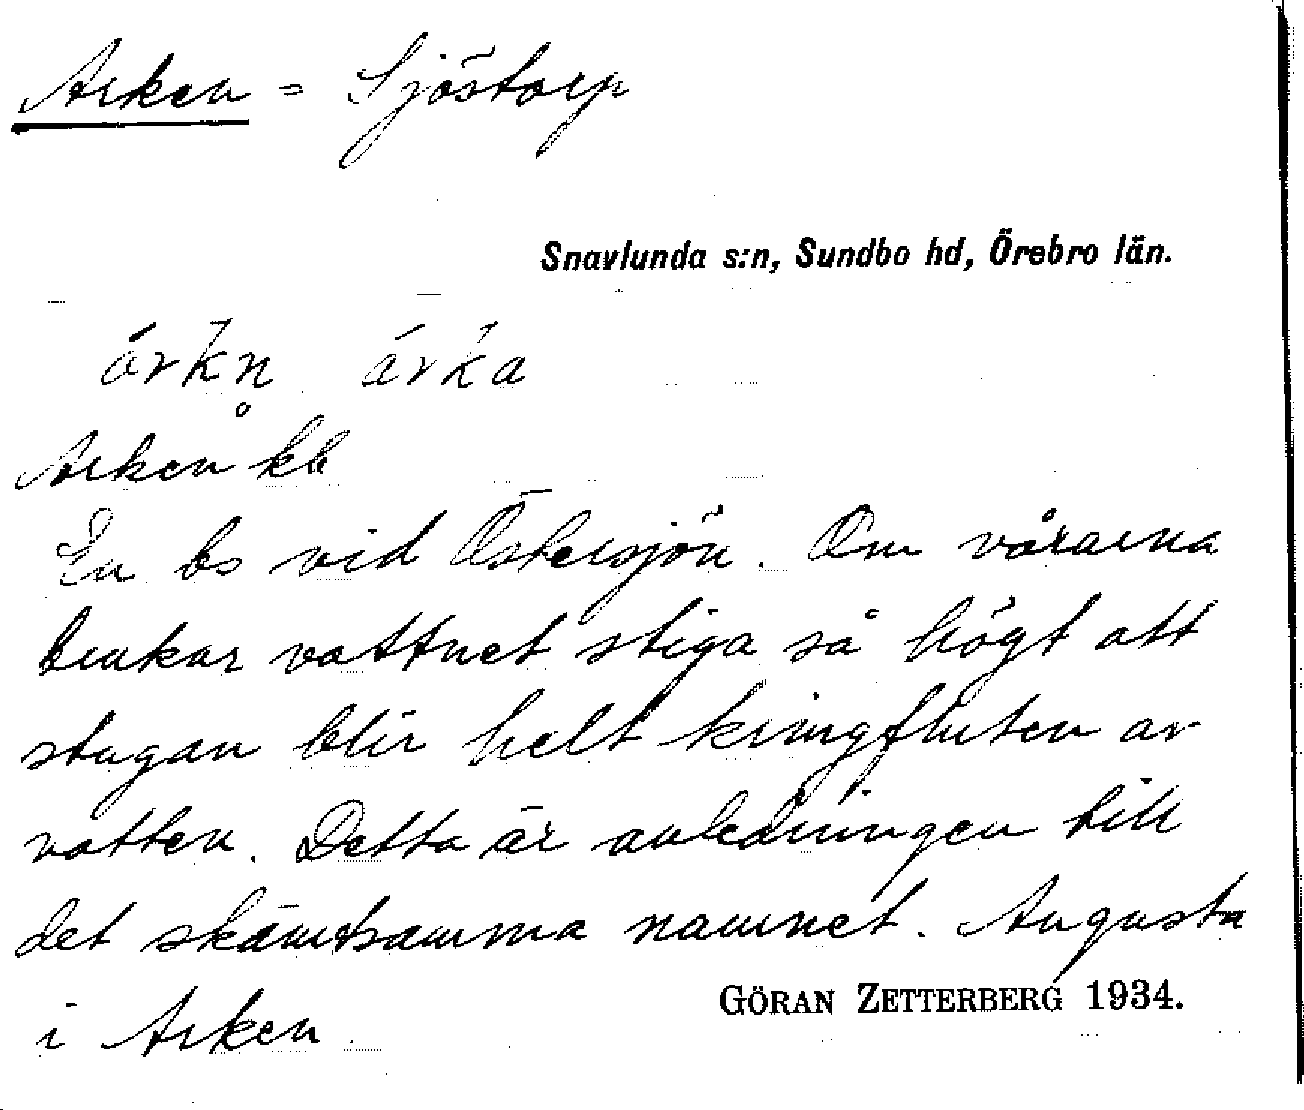 Arken = Sjöstorp
Snavlunda s:n, Sundbo hd, Örebro län.
árkn̥ árka
Arken kb
En bs vid Östersjön. Om vårarna
brukar vattnet stiga så högt att
stugan blir helt kringfluten av
vatten. Detta är anledningen till
det skämtsamma namnet. Augusta
i Arken
GÖRAN ZETTERBERG 1934.